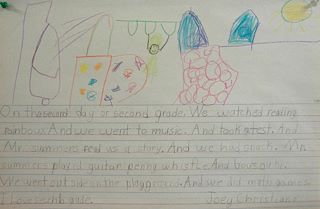 On the second day of second grade. We watched reading
rainbows. And we went to music. And took a test. And
Mr. summers read us a story. And we had snack. Mr.
summers played guitar penny whistle. And
We went outside on the playground. And we did math games.
I love secnb grade. Joey Christians